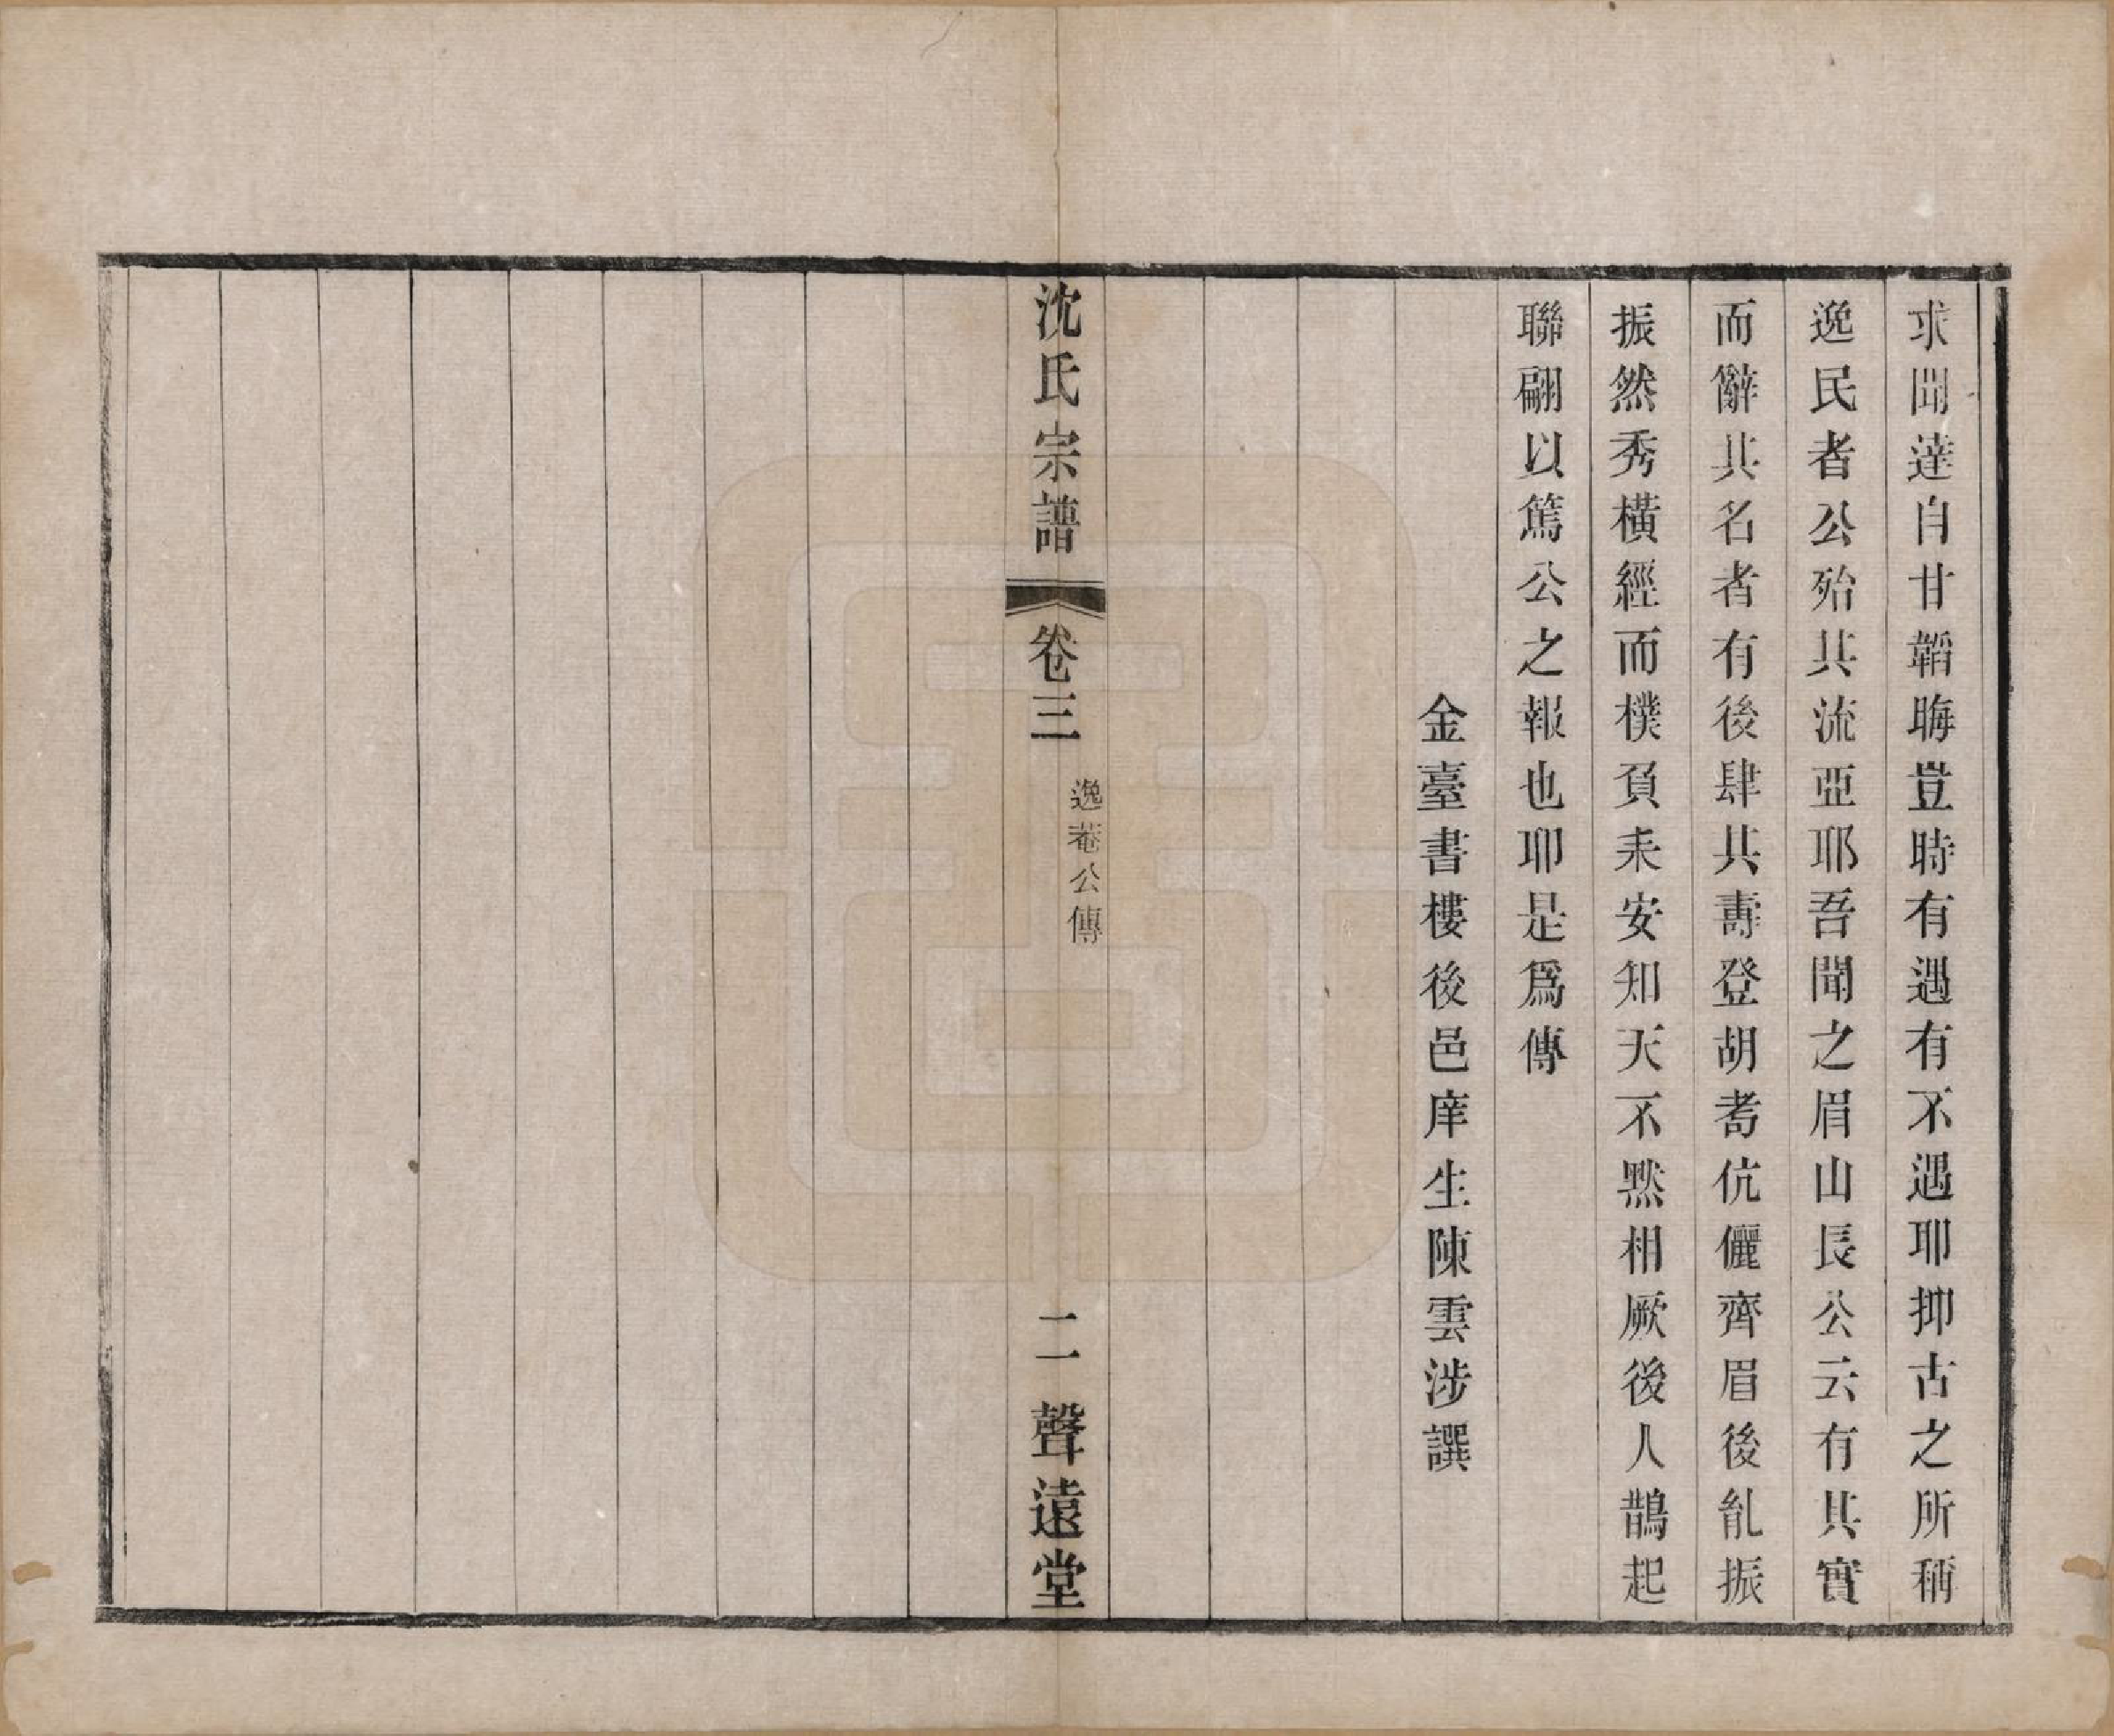 求聞達自甘韜晦豈時有遇有不遇耶抑古之所稱
逸民者公殆其流亞耶吾聞之眉山長公云有其實
而辭其名者有後肆其壽登胡耈伉儷齊眉後胤振
振然秀橫經而樸負耒安知天不黙相厥後人鵲起
聯翩以篤公之報也耶是爲傳
金臺書樓後邑庠生陳雲涉譔
沈氏宗譜
卷三
逸菴公傳
二
聲遠堂